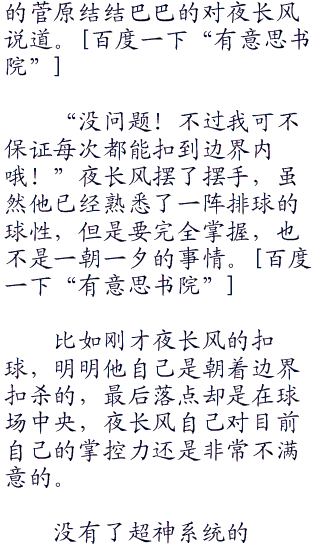 的菅原结结巴巴的对夜长风
说道。[百度一下“有意思书
院”]
“没问题！不过我可不
保证每次都能扣到边界内
哦！”夜长风摆了摆手，虽
然他已经熟悉了一阵排球的
球性，但是要完全掌握，也
不是一朝一夕的事情。[百度
一下“有意思书院”]
比如刚才夜长风的扣
球，明明他自己是朝着边界
扣杀的，最后落点却是在球
场中央，夜长风自己对目前
自己的掌控力还是非常不满
意的。
没有了超神系统的